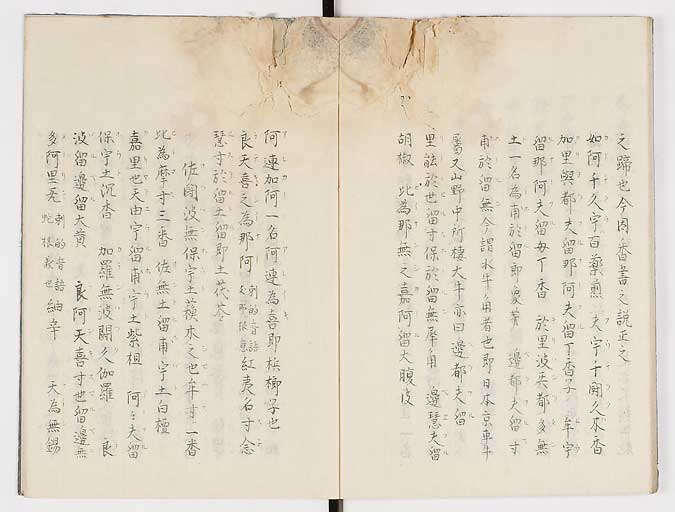 之蹄也今因番書之說正之
如阿千久字百藥煎 夫字千開久木香
加里與都夫留那阿夫留丁香子 牟宇
留那阿夫留母丁香 於里波與都多無
土一名為甫於留即象牙 邊都夫留寸
甫於留無今謂水牛角者也即日本京車牛
屬又山野中所棲大牛亦曰邊都夫留
里能於世留寸保於留無犀角 邊慧夫留
胡椒 比為那無之嘉阿留大腹皮
阿連加阿一名阿連為喜即檳榔子也
良天喜之為那阿 剌的音語 紅夷名寸念
慧寸於留土留即土茯苓
佐闊波無保宇土蘇木之也牟寸一番
比為摩寸三番 佐無土留甫宇土白檀
嘉里也天由宇留甫宇土紫檀 阿々夫留
保宇土沉香 加羅無波闊久伽羅 良
波留邊留大黃 良阿天喜寸世留邊無
多阿里无 剌的音語 蛇根義也 細辛 天為無錫